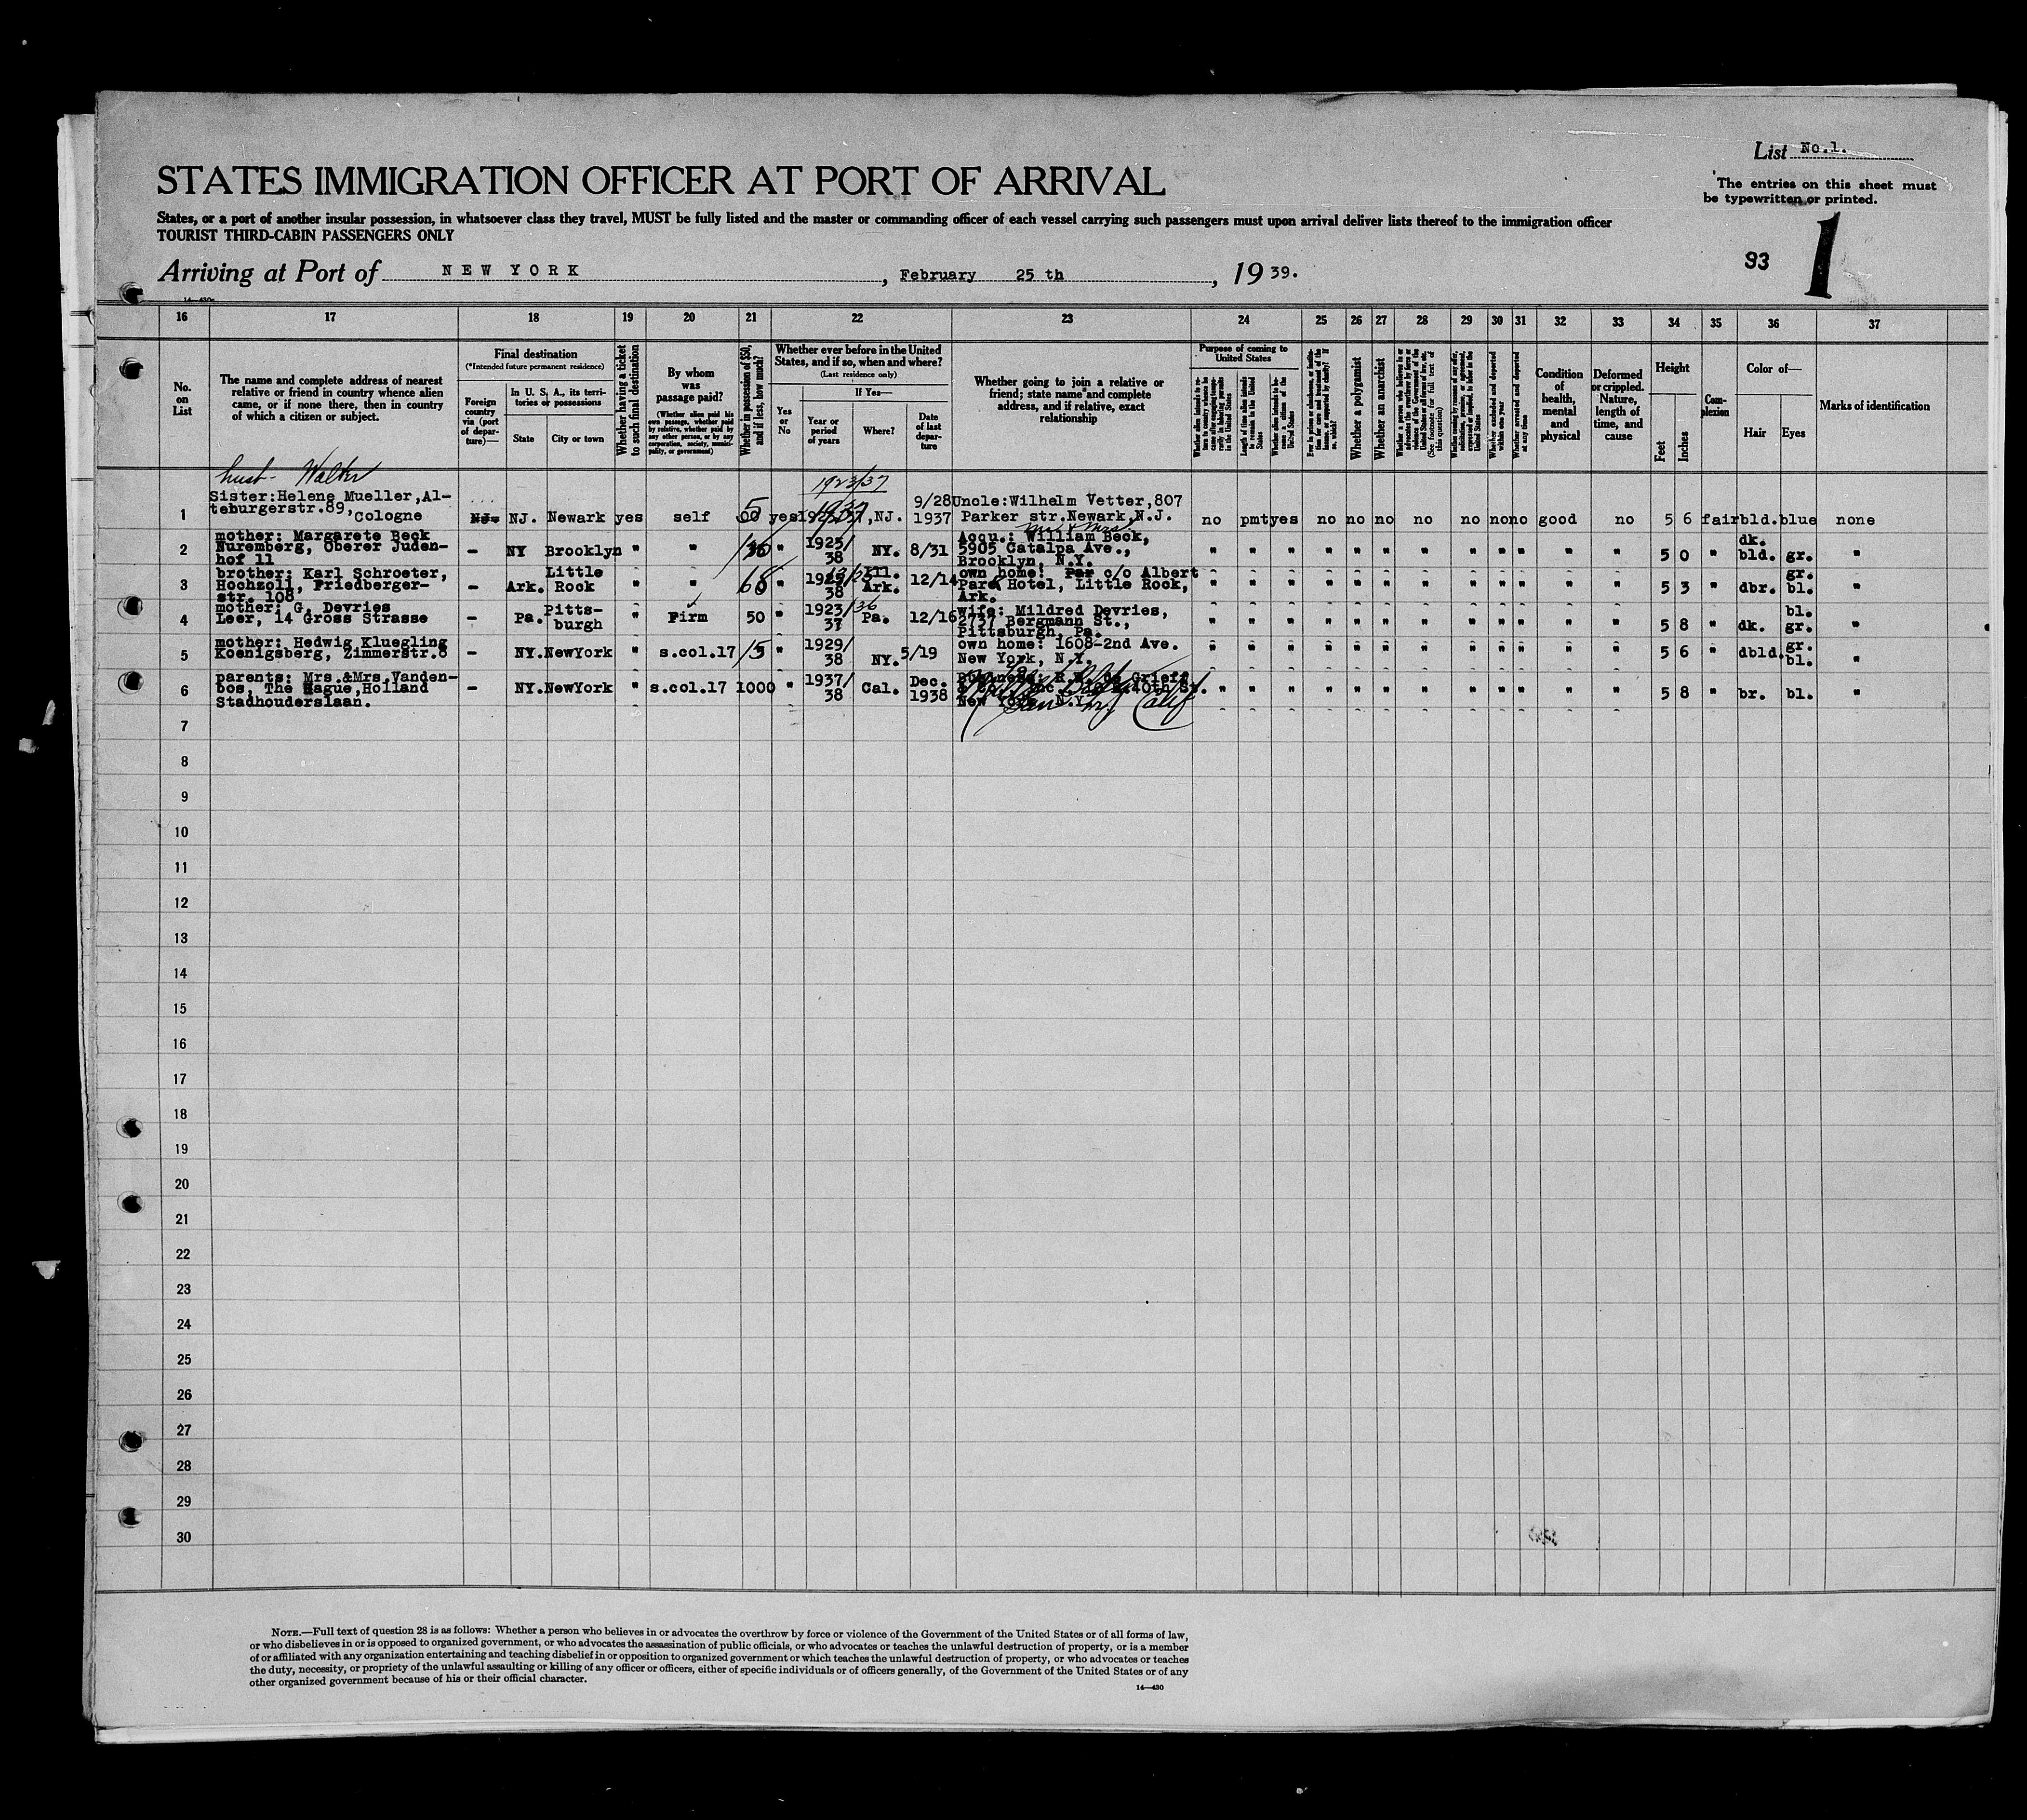 List No.1.
STATES IMMIGRATION OFFICER AT PORT OF ARRIVAL
The entries on this sheet must
be typewritten or printed.
States, or a port of another insular possession, in whatsoever class they travel, MUST be fully listed and the master or commanding officer of each vessel carrying such passengers must upon arrival deliver lists thereof to the immigration officer
TOURIST THIRD-CABIN PASSENGERS ONLY
93 1
Arriving at Port of NEW YORK, February 25 th, 19 39.
14—430
16 17 18 19 20 21 22 23 24 25 26 27 28 29 30 31 32 33 34 35 36 37
No. on List
The name and complete address of nearest relative or friend in country whence alien came, or if none there, then in country of which a citizen or subject.
Final destination
(*Intended future permanent residence)
Foreign country via (port of departure)—
In U. S. A., its territories or possessions
State
City or town
Whether having a ticket to such final destination
By whom was passage paid?
(Whether alien paid his own passage, whether paid by relative, whether paid by any other person, or by any corporation, society, municipality, or government)
Whether in possession of $50, and if less, how much?
Whether ever before in the United States, and if so, when and where?
(Last residence only)
Yes or No
If Yes—
Year or period of years
Where?
Date of last departure
Whether going to join a relative or friend; state name and complete address, and if relative, exact relationship
Purpose of coming to United States
Length of time alien intends to remain in the United States
Whether alien intends to become a citizen of the United States
Whether a polygamist
Whether an anarchist
(See footnote for full text of this question)
Whether excluded and deported within one year
Whether arrested and deported at any time
Condition of health, mental and physical
Deformed or crippled. Nature, length of time, and cause
Height
Feet
Inches
Complexion
Color of—
Hair
Eyes
Marks of identification
hust- Walter
1923/37
1 Sister:Helene Mueller,Alteburgerstr.89,Cologne NJ. NJ. Newark yes self 50 yes ,NJ. 9/28 1937 Uncle:Wilhelm Vetter,807 Parker str.Newark,N.J. no pmt yes no no no no no no no good no 5 6 fair bld. blue none
Mr & Mrs.
2 mother: Margarete Beck Nuremberg, Oberer Judenhof 11 - NY Brooklyn " " " 1925/38 NY. 8/31 Acqu.: William Beck, 5905 Catalpa Ave., Brooklyn, N.Y. " " " " " " " " " " " " 5 0 " dk. bld. gr. "
3 brother: Karl Schroeter, Hochzoll, Friedbergerstr. 108 - Ark. Little Rock " " " 38 Ill. Ark. 12/14 own home: Par c/o Albert Park Hotel, Little Rock, Ark. " " " " " " " " " " " " 5 3 " dbr. gr. bl. "
4 mother: G. Devries Leer, 14 Gross Strasse - Pa. Pittsburgh " Firm 50 " 1923/36 37 Pa. 12/16 wife: Mildred Devries, 2737 Bergmann St., Pittsburgh, Pa. " " " " " " " " " " " " 5 8 " dk. bl. gr. "
5 mother: Hedwig Kluegling Koenigsberg, Zimmerstr.8 - NY. NewYork " s.col.17 15 " 1929/38 NY. 5/19 own home: 1608-2nd Ave. New York, N.Y. " " " " " " " " " " " " 5 6 " dbld. gr. bl. "
6 parents: Mrs.&Mrs.Vandenbos, The Hague,Holland Stadhouderslaan. - NY. NewYork " s.col.17 1000 " 1937/38 Cal. Dec. 1938 New York, N.Y. Calif " " " " " " " " " " " " 5 8 " br. bl. "
7
8
9
10
11
12
13
14
15
16
17
18
19
20
21
22
23
24
25
26
27
28
29
30
NOTE.—Full text of question 28 is as follows: Whether a person who believes in or advocates the overthrow by force or violence of the Government of the United States or of all forms of law,
or who disbelieves in or is opposed to organized government, or who advocates the assassination of public officials, or who advocates or teaches the unlawful destruction of property, or is a member
of or affiliated with any organization entertaining and teaching disbelief in or opposition to organized government or which teaches the unlawful destruction of property, or who advocates or teaches
the duty, necessity, or propriety of the unlawful assaulting or killing of any officer or officers, either of specific individuals or of officers generally, of the Government of the United States or of any
other organized government because of his or their official character.
14—430